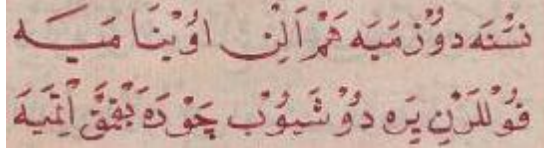 نَسْنَه دُوزْمَيَه هَمْ اَلِنْ اوُيْنَا مَيَه
قوُللَرْنِ يَرَه دوُشَيوُبْ چَوْرَه بَقِقْ اِتْمَيَه